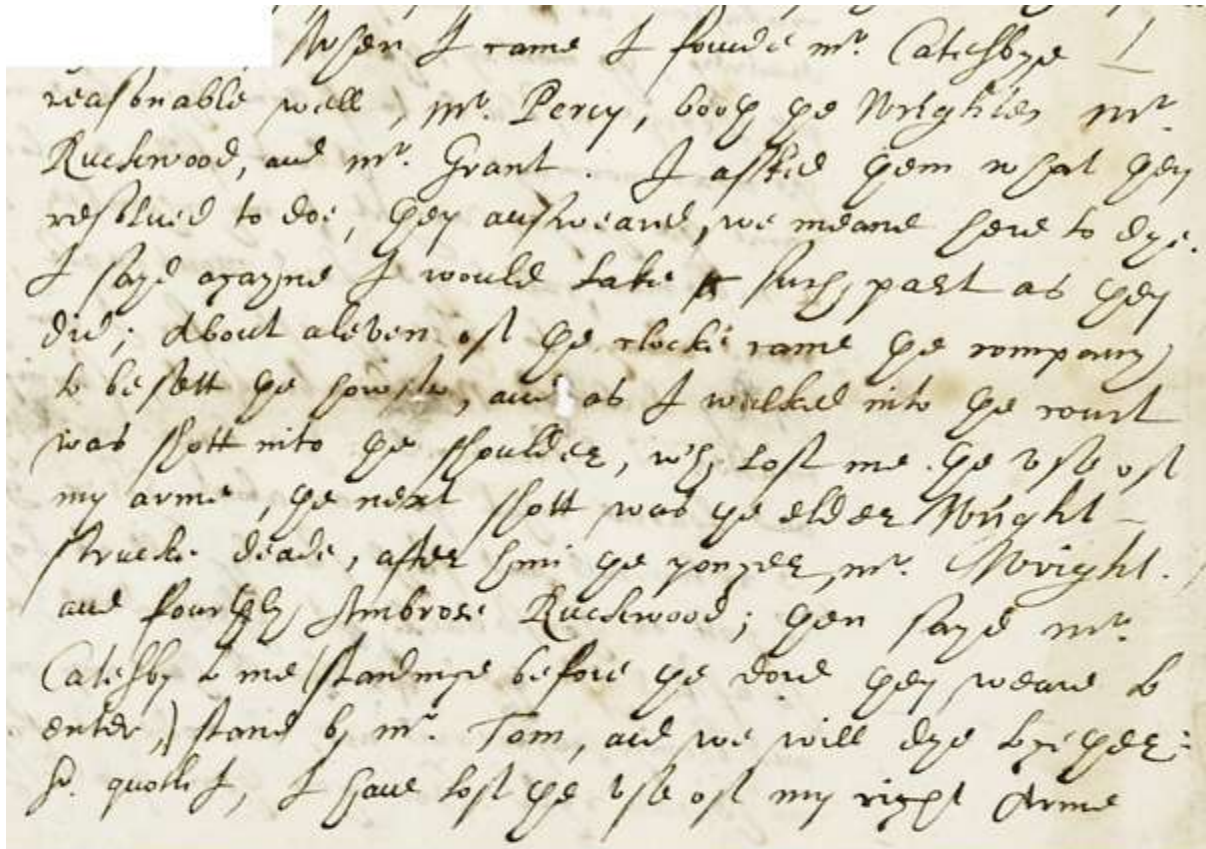 When I came I founde mr. Catesbye
reasonable well, mr. Percy, both ye Wrightes, mr.
Ruckwood, and mr. Grant. I asked yem what yey
resolued to doe, yey answeared, we meane here to dye.
I sayd agayne I would take such part as yey
did; About aleven of ye clocke came ye company
to besett ye howse, and as I walked into ye court
was shott into ye shoulder, wch lost me ye vse of
my arme, ye next shott was ye elder Wright
strucke deade, after him ye yonger mr. Wright.
and fourthly Ambrose Ruckwood; yen sayd mr.
Catesby to me (standinge before ye dore yey weare to
enter,) stand by mr. Tom, and we will dye togeyer:
Sr. quoth I, I haue lost ye vse of my right Arme